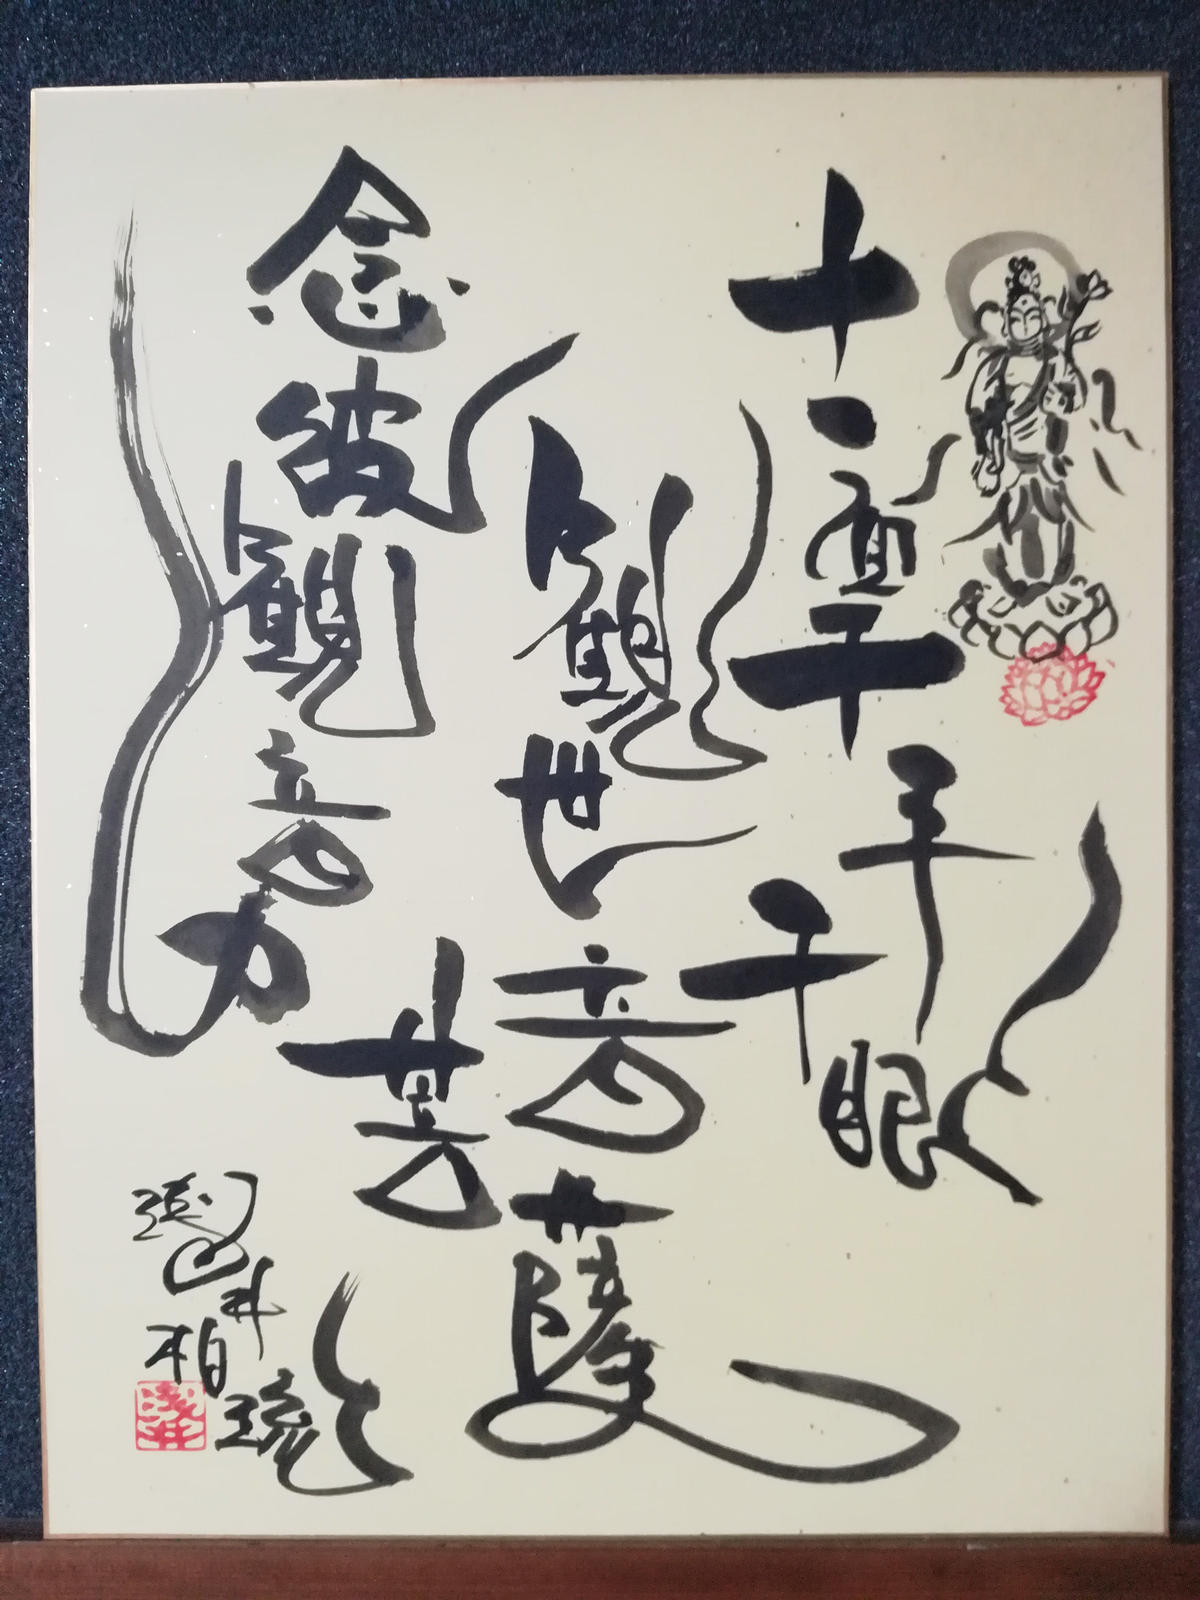 十一面千手千眼
観世音菩薩
念彼観音力